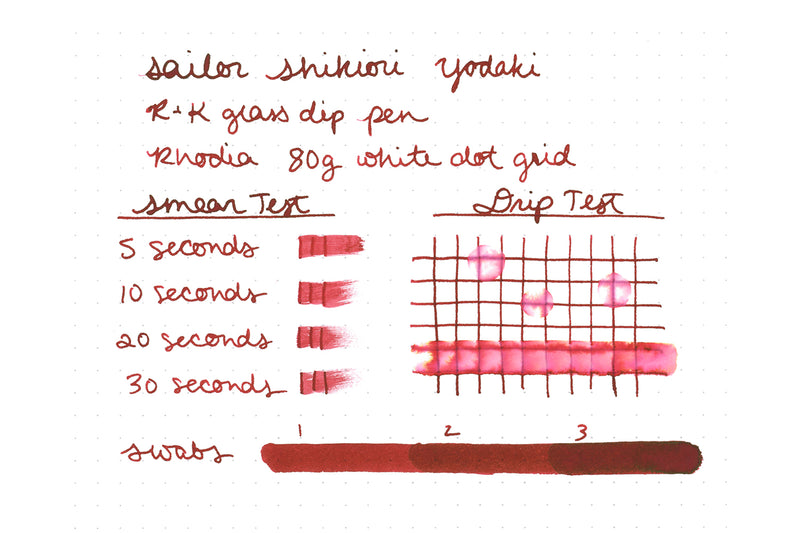 sailor shikiori yodaki
R+K glass dip pen
Rhodia 80g white dot grid
Smear Test
Drip Test
5 seconds
10 seconds
20 seconds
30 seconds
1 2 3
swabs